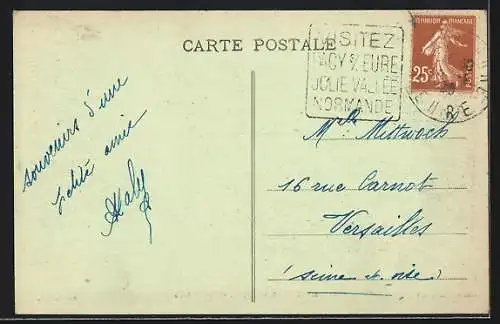 CARTE POSTALE
VISITEZ
PACY S/ EURE
JOLIE VALLÉE
NORMANDE
REPUBLIQUE FRANCAISE
25c
POSTES
EURE
souvenirs d'une
petite amie
Mlle Mittwoch
16 rue Carnot
Versailles
(Seine et oise)